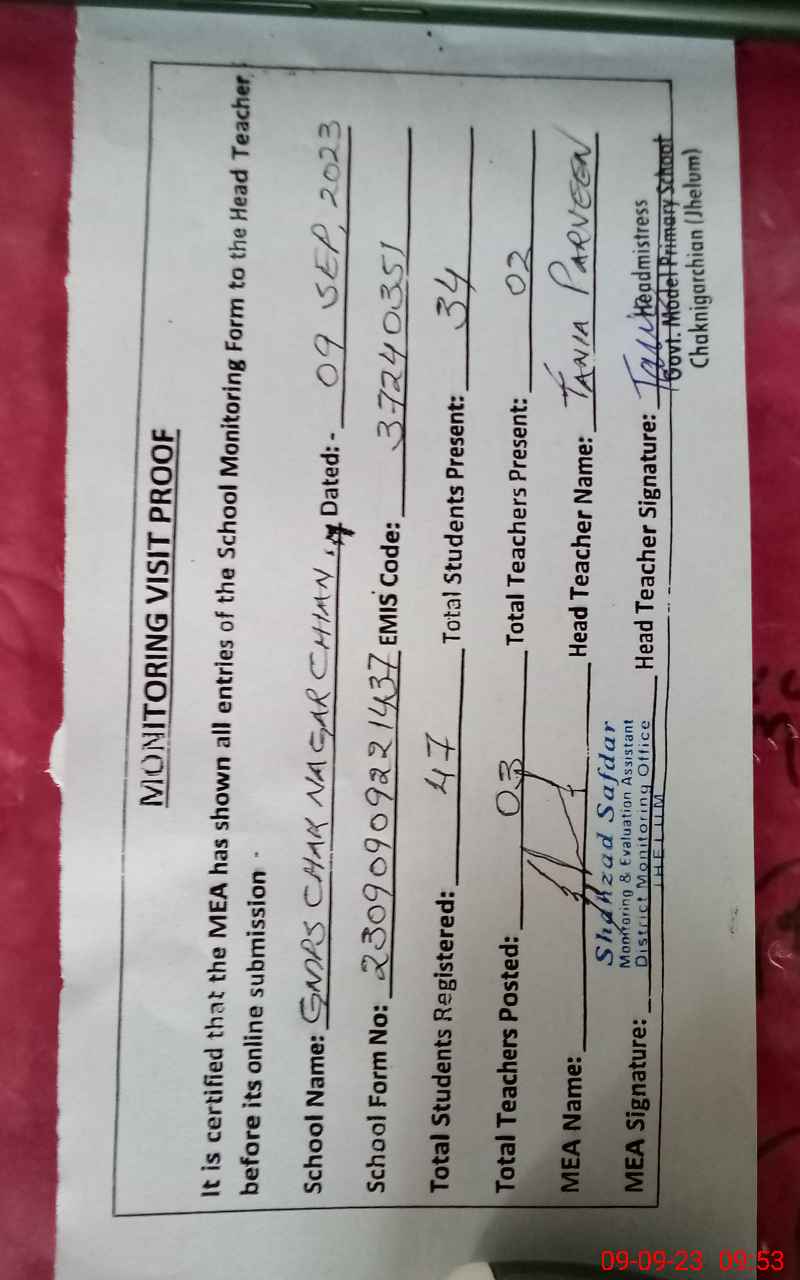 MONITORING VISIT PROOF
It is certified that the MEA has shown all entries of the School Monitoring Form to the Head Teacher
before its online submission
School Name: GMPS CHAK NAGAR CHIAN Dated: - 09 SEP, 2023
School Form No: 23090909221437 EMIS Code: 37240351
Total Students Registered: 47 Total Students Present: 34
Total Teachers Posted: 03 Total Teachers Present: 02
MEA Name: Head Teacher Name: TANIA PARVEEN
Shahzad Safdar
Monitoring & Evaluation Assistant
District Monitoring Office
JHELUM
MEA Signature: Head Teacher Signature:
Headmistress
Govt. Model Primary School
Chaknigarchian (Jhelum)
09-09-23 09:53